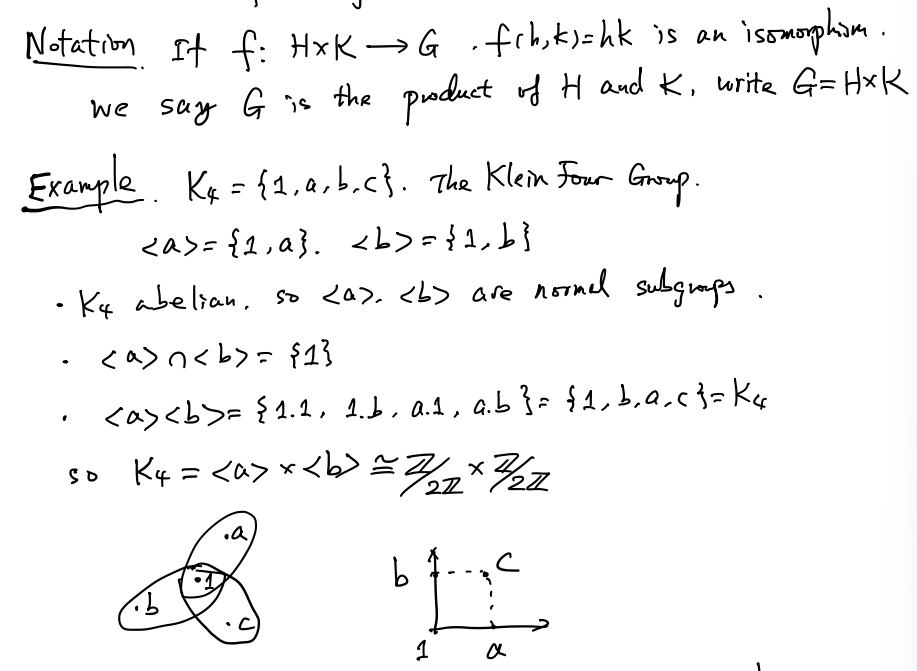 Notation. If f: H×K → G . f(h,k)=hk is an isomorphism.
we say G is the product of H and K, write G=H×K
Example. K₄ = {1,a,b,c}. The Klein Four Group.
<a>={1,a}. <b>={1,b}
· K₄ abelian, so <a>, <b> are normal subgroups.
· <a>∩<b>= {1}
· <a><b>= {1.1, 1.b, a.1, a.b}= {1,b,a,c}=K₄
so K₄ = <a>×<b> ≅ ℤ/2ℤ × ℤ/2ℤ
.a
.1
.b
.c
b
c
1
a